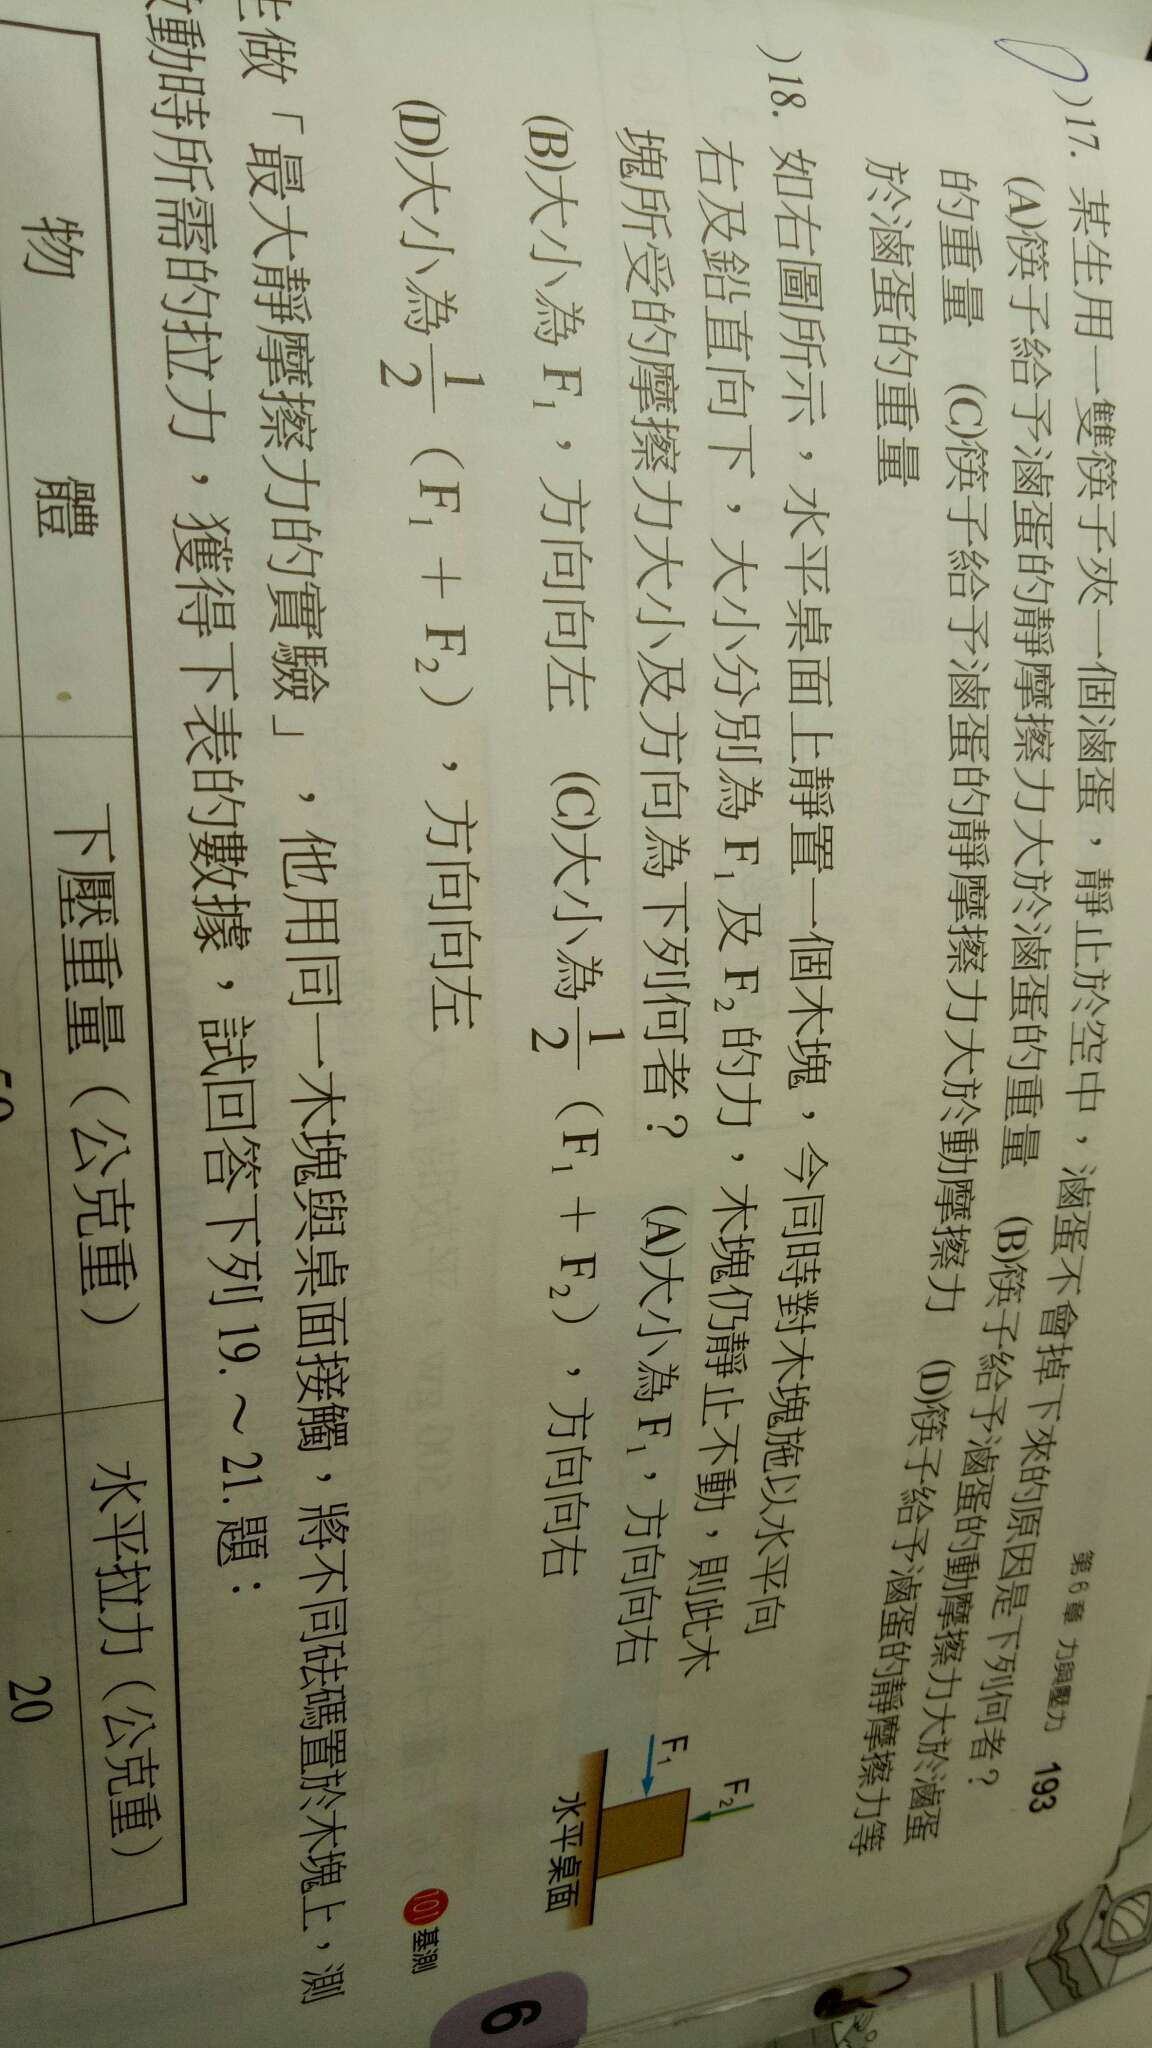 第6章 力與壓力 193
)17. 某生用一雙筷子夾一個滷蛋，靜止於空中，滷蛋不會掉下來的原因是下列何者？
(A)筷子給予滷蛋的靜摩擦力大於滷蛋的重量 (B)筷子給予滷蛋的動摩擦力大於滷蛋
的重量 (C)筷子給予滷蛋的靜摩擦力大於動摩擦力 (D)筷子給予滷蛋的靜摩擦力等
於滷蛋的重量
)18. 如右圖所示，水平桌面上靜置一個木塊，今同時對木塊施以水平向
右及鉛直向下，大小分別為 F₁ 及 F₂ 的力，木塊仍靜止不動，則此木
塊所受的摩擦力大小及方向為下列何者？ (A)大小為 F₁，方向向右
(B)大小為 F₁，方向向左 (C)大小為 1/2 (F₁ + F₂)，方向向右
(D)大小為 1/2 (F₁ + F₂)，方向向左
F₂
F₁
水平桌面
101 基測
6
生做「最大靜摩擦力的實驗」，他用同一木塊與桌面接觸，將不同砝碼置於木塊上，測
動時所需的拉力，獲得下表的數據，試回答下列 19. ～ 21. 題：
物 體 下壓重量（公克重） 水平拉力（公克重）
20